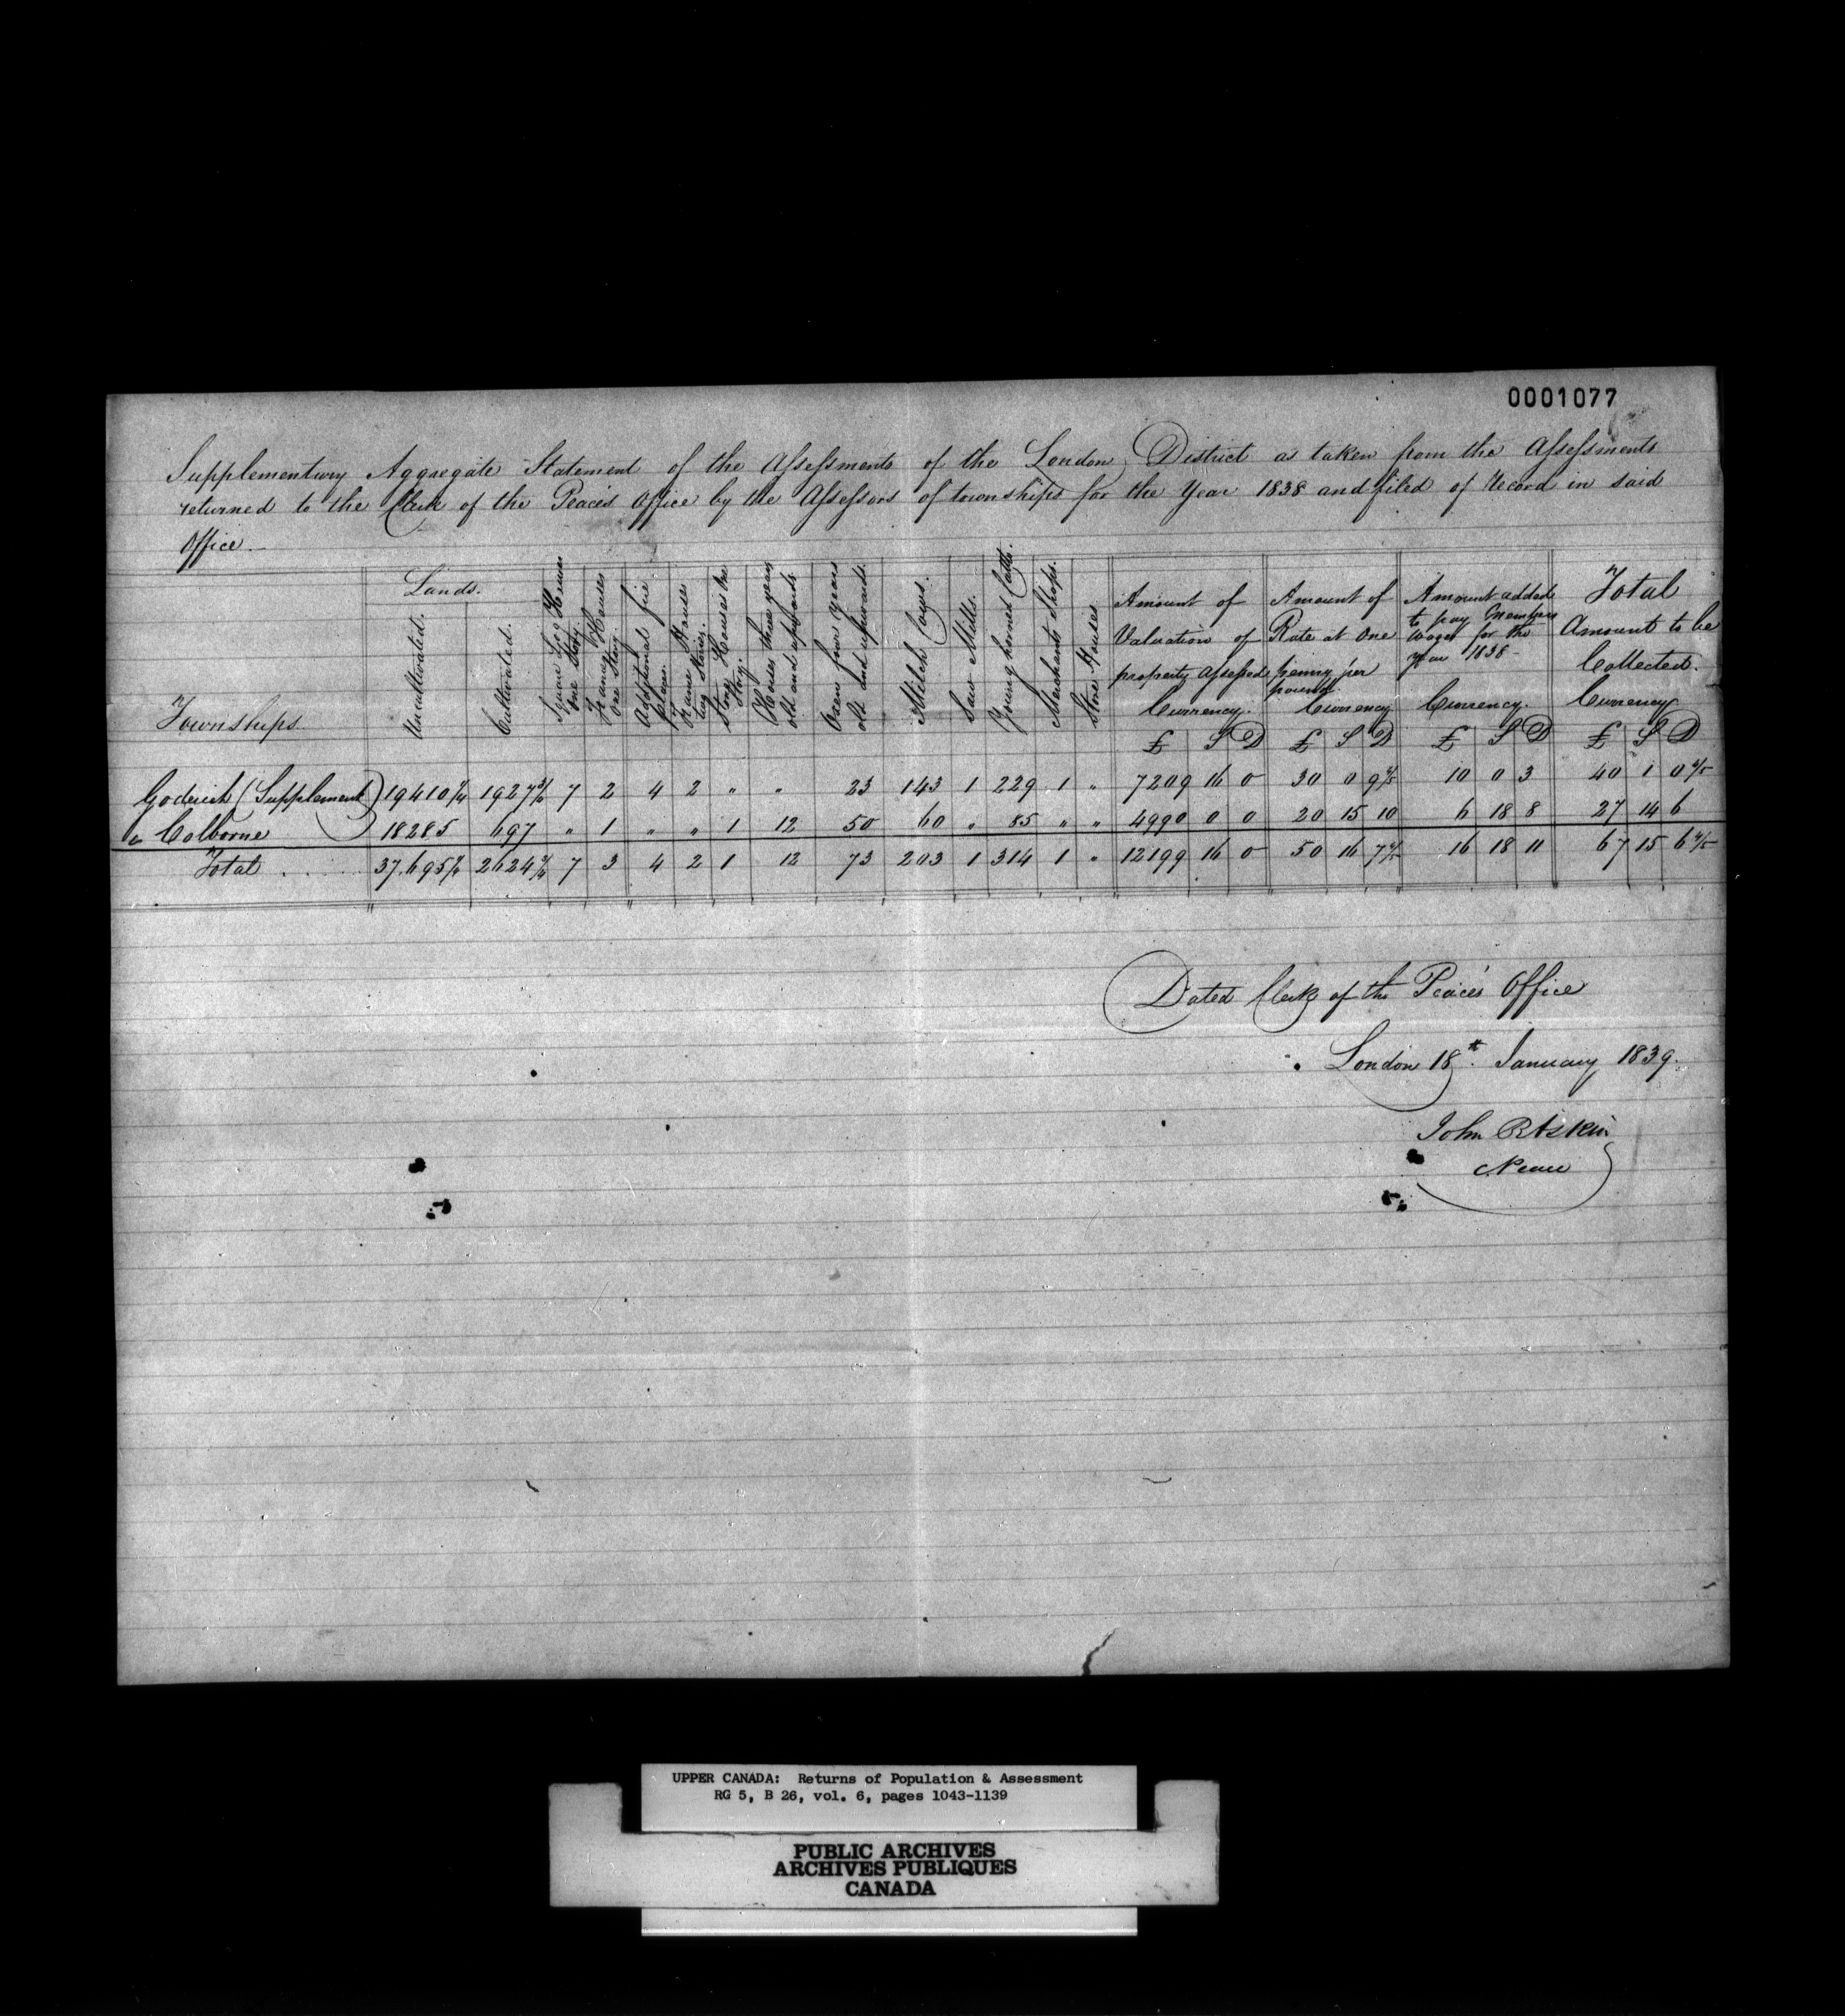 0001077
Supplementary Aggregate Statement of the Assessments of the London District as taken from the Assessments
returned to the Clerk of the Peace's Office by the Assessors of townships for the Year 1838 and filed of Record in said
Office.
Townships.
Lands.
Uncultivated.
Cultivated.
Square Log Houses
One Story
Framed Houses
One Story
Additional fire
places.
Frame Houses
two Stories.
Stone Houses One
Story.
Horses three years
old and upwards
Oxen four years
old and upwards.
Milch Cows.
Saw Mills.
Young horned Cattle.
Merchants Shops.
Store Houses
Amount of
Valuation of
property assessed
Currency.
£ S D
Amount of
Rate at One
penny per
pound.
Currency
£ S D
Amount added
to pay Members
Wages for the
Year 1838
Currency.
£ S D
Total
Amount to be
Collected.
Currency
£ S D
Goderich (Supplement) 19410 1927 7 2 4 2 " " 23 143 1 229 1 " 7209 16 0 30 0 9 10 0 3 40 1 0
" Colborne 18285 697 " 1 " " 1 12 50 60 " 85 " " 4990 0 0 20 15 10 6 18 8 27 14 6
Total 37.695 2624 7 3 4 2 1 12 73 203 1 314 1 " 12199 16 0 50 16 7 16 18 11 67 15 6
Dated Clerk of the Peace's Office
London 18th January 1839.
John B Askin
C Peace
UPPER CANADA: Returns of Population & Assessment
RG 5, B 26, vol. 6, pages 1043-1139
PUBLIC ARCHIVES
ARCHIVES PUBLIQUES
CANADA